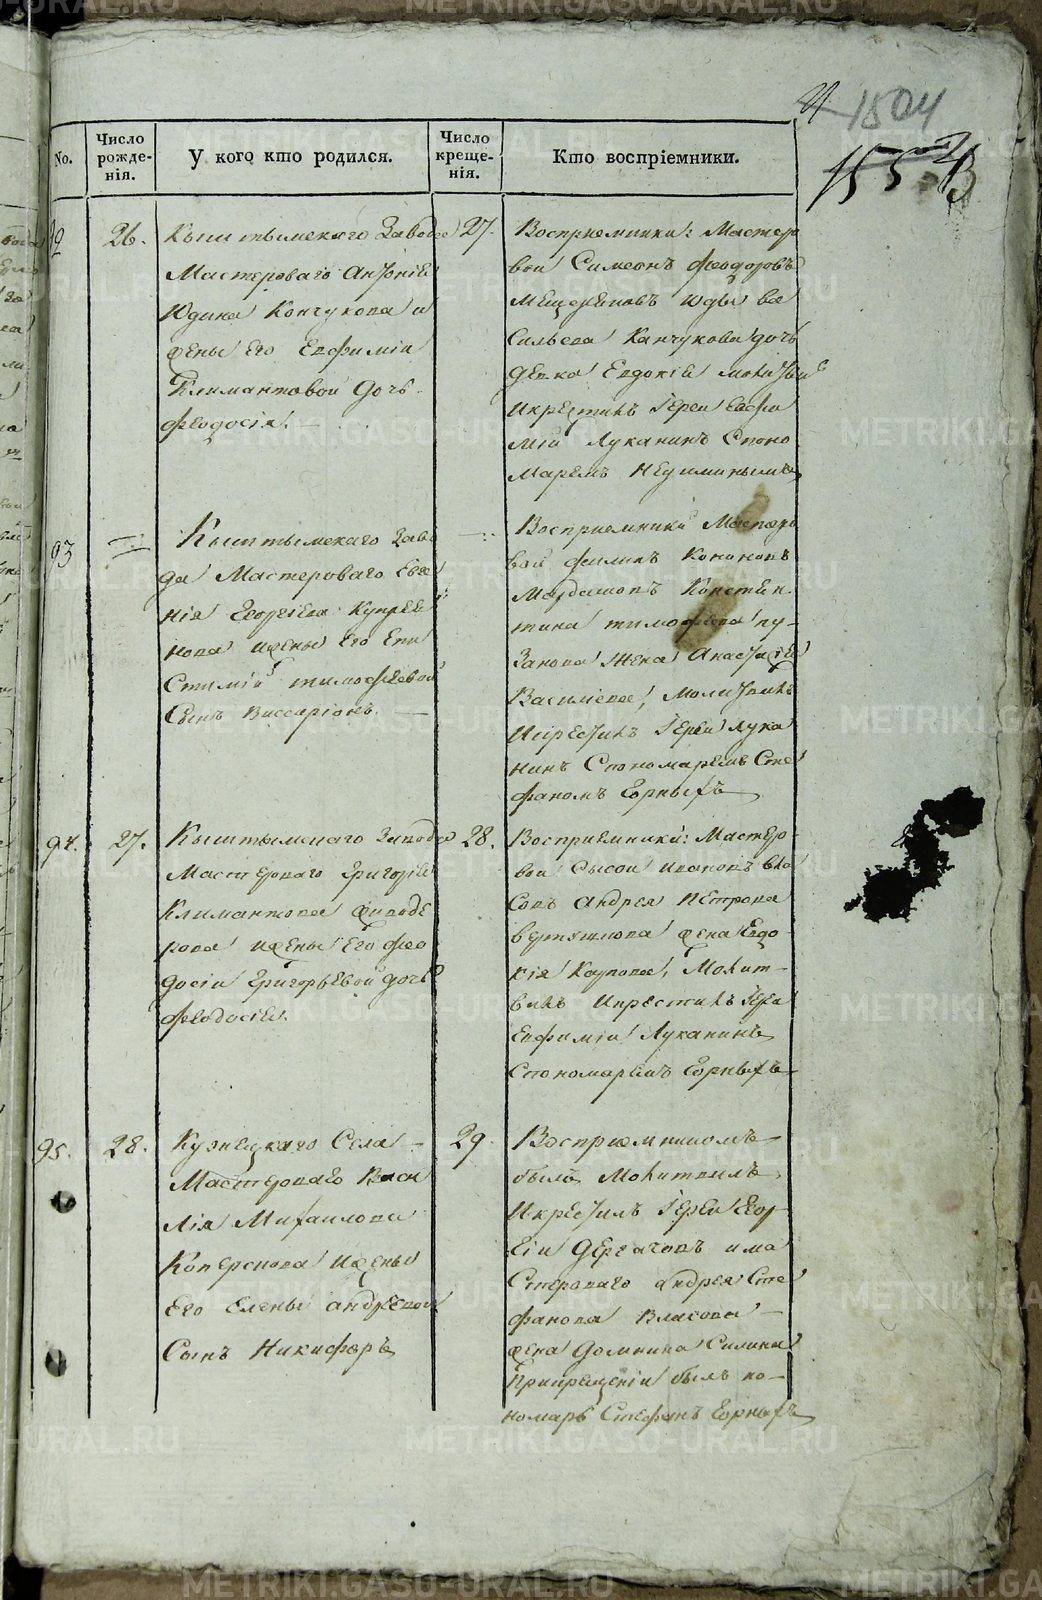 1504
155
No.
Число рожде-нія.
У кого кто родился.
Число креще-нія.
Кто воспріемники.
26.
Кыштымскаго Завода
Мастероваго
Юдина Канчукова и
жены его Евфиміи
Климантовой дочь
Феодосія.
27.
Восприемники: Мастеро
вой Симеонъ Феодоровъ
Мещеряковъ Юды Ва
сильева Канчукова дочь
девка Евдокія
Икрестилъ Іерей Евфи
мій Луканинъ Споно
маремъ
93
Кыштымскаго Заво
да Мастероваго Евге
нія Георгіева Купрея
нова ижены Его
тимофѣевой
Сынъ Виссаріонъ.
Восприемники Мастеро
вой филипъ Кононовъ
Мардашовъ Констен
тина тимофѣева пу-
занова Жена Анастасія
Васильева, Молитвилъ
Икрестилъ Іерей Лука
нинъ Спономаремъ Сте
фаномъ Горныхъ
94.
27.
Кыштымскаго Завода
Мастероваго Григорія
Климантова
рова ижены Его Фео
досіи Григорьевой дочь
Феодосія.
28.
Восприемники: Мастеро
вой Сысой Ивановъ Вла
совъ Андрея Петрова
жена Евдо
кія Карпова, Молит-
вилъ Икрестилъ Іерей
Евфимій Луканинъ
Спономаремъ Горныхъ
95.
28.
Кузнецкаго Села
Мастероваго Васи
лія Михаилова
ижены
Его Елены андреевой
Сынъ Никифоръ
29.
Восприемникомъ
былъ Молитвилъ
Икрестилъ Іерей Геор
гій Дергачовъ има
стероваго андрея Сте
фанова Власова
жена Домнина Силина
Прикрещеніи былъ по-
номарь Стефанъ Горныхъ
METRIKI.GASO-URAL.RU